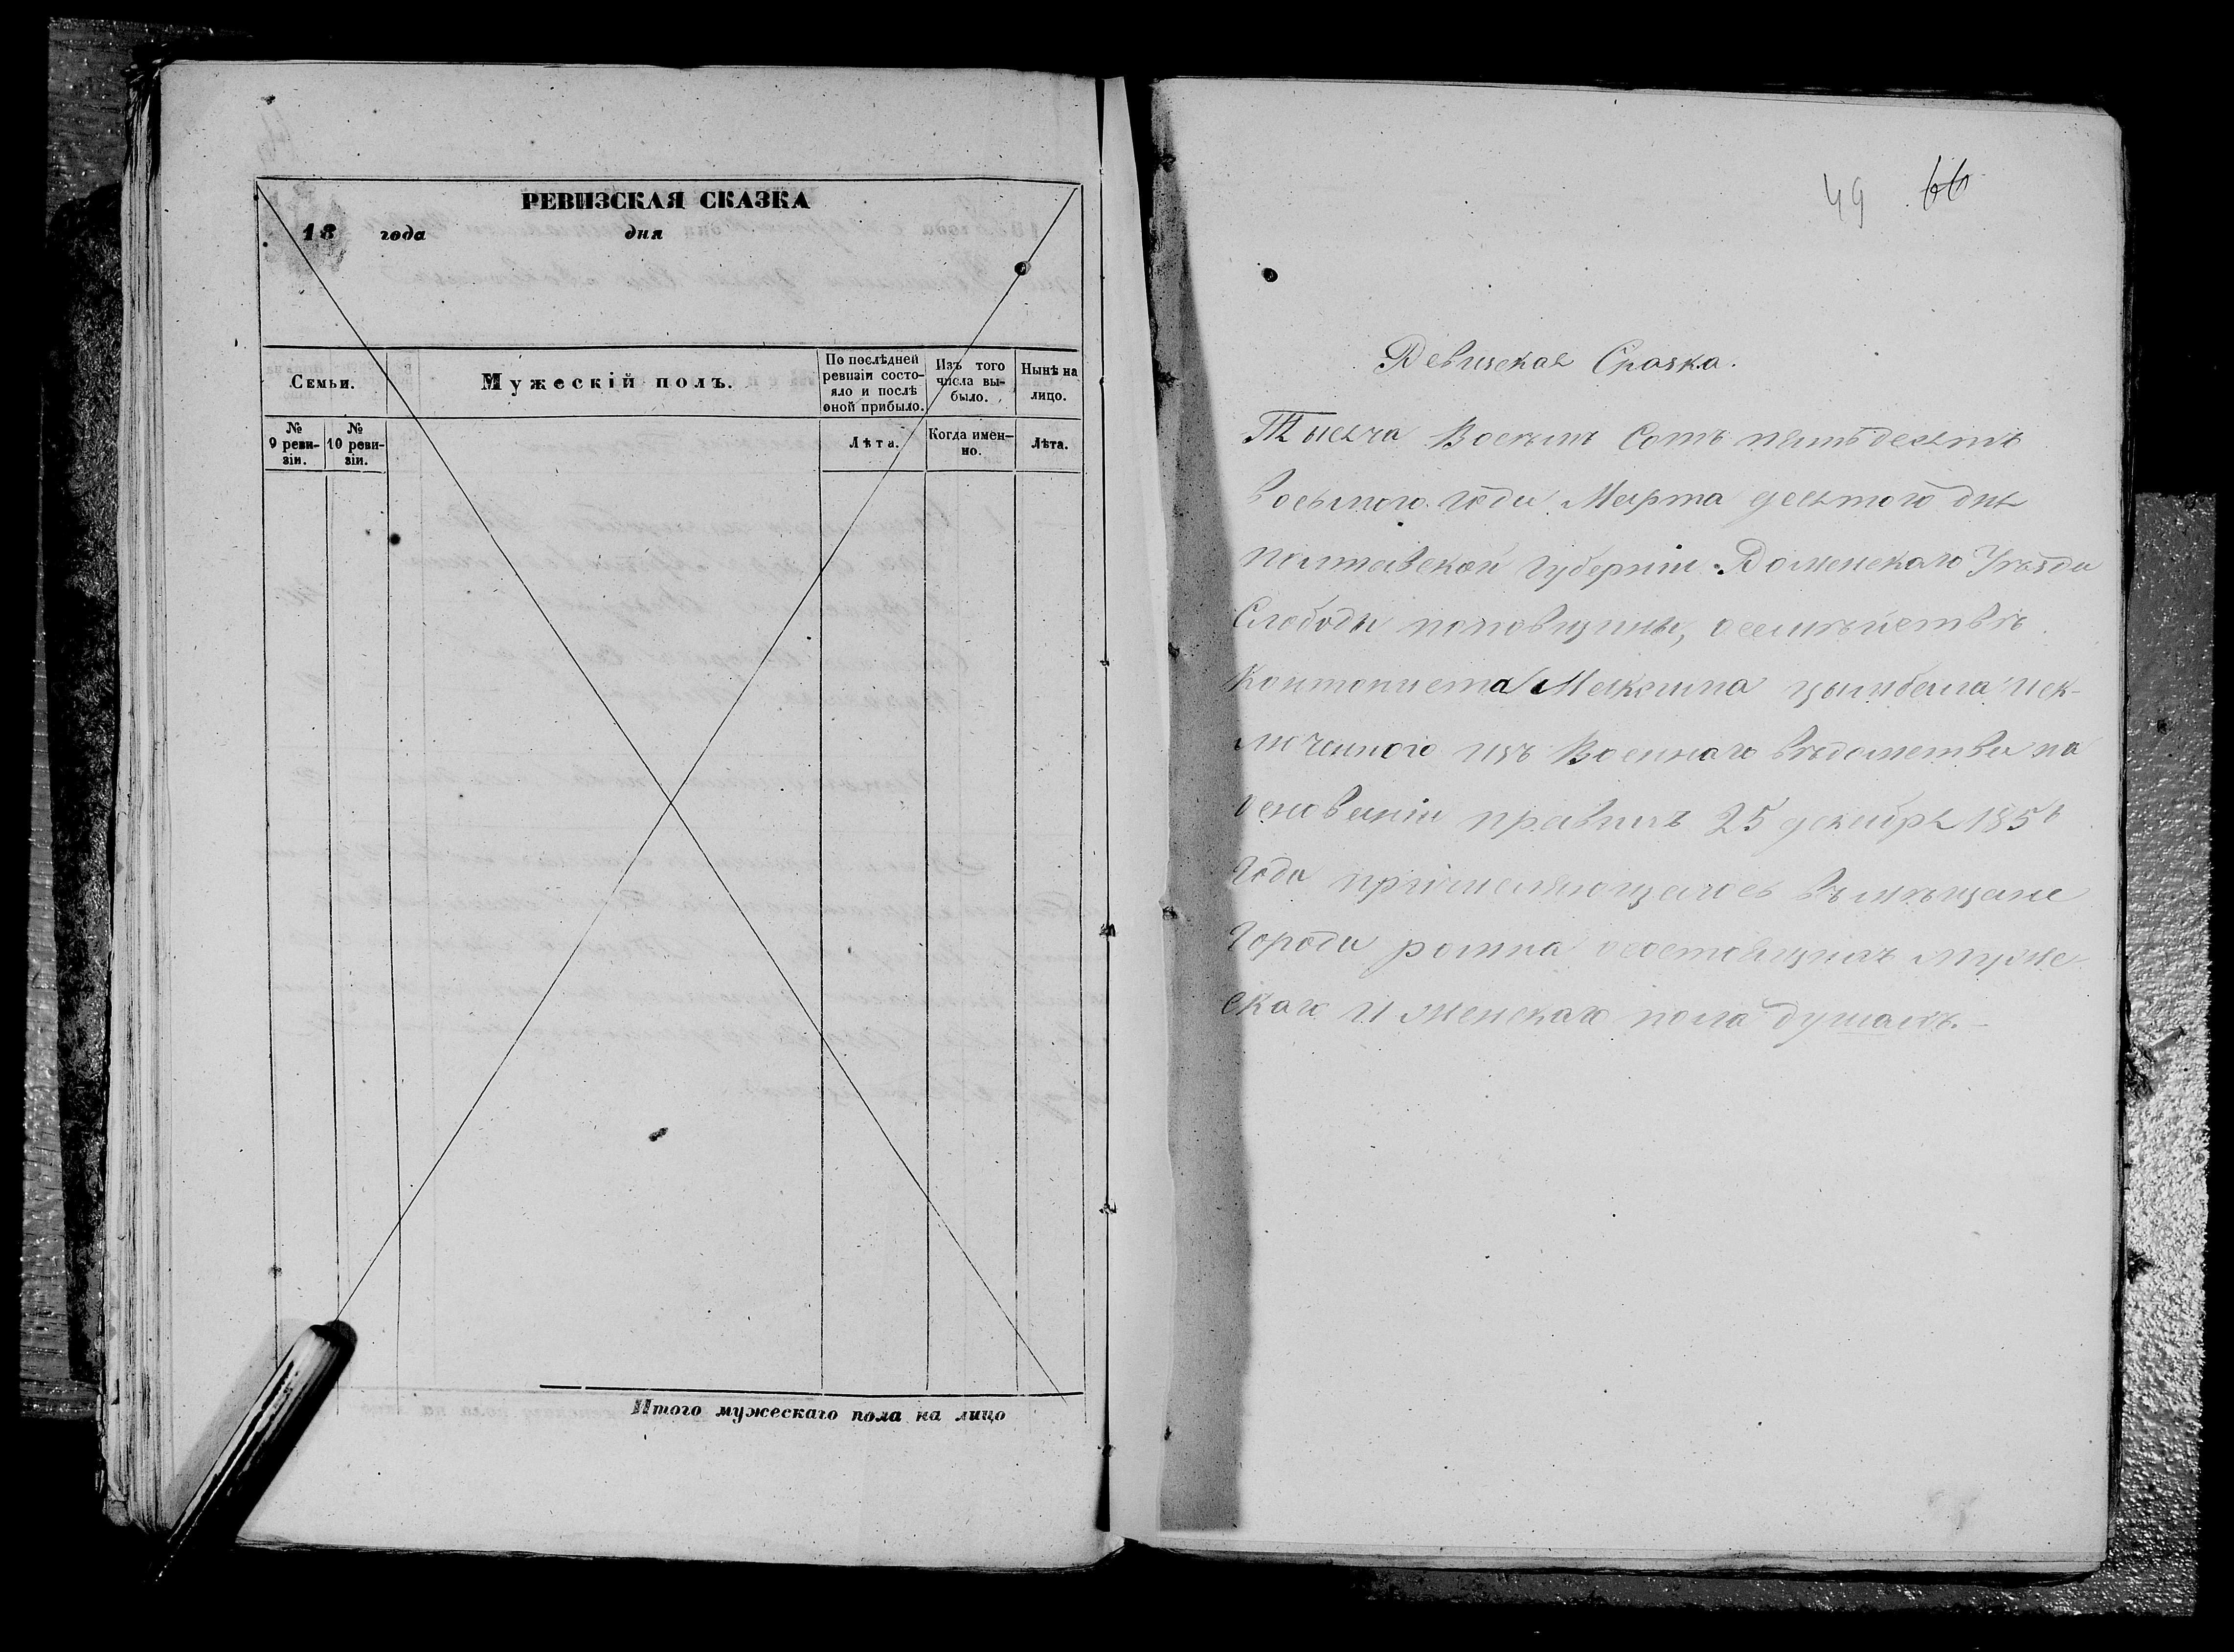 РЕВИЗСКАЯ СКАЗКА
18 года дня
Семьи.
Мужескій полъ.
По послѣдней
ревизіи состо-
яло и послѣ
оной прибыло.
Изъ того
числа вы-
было.
Нынѣ на
лицо.
№
9 реви-
зіи.
№
10 реви-
зіи.
Лѣта.
Когда имен-
но.
Лѣта.
Итого мужескаго пола на лицо
49 66
Ревизская Сказка.
Тысяча Восемъ Сотъ пятьдесятъ
восьмого года Марта десятого дня
Полтавской губерніи Роменскаго Уѣзда
Слободы поповщины, осемѣйствѣ
Кантониста цымбала иск-
люченного изъ Военнаго вѣдомства на
основаніи правилъ 25 декабря 1856
года причисляющагося въ мѣщане
города ромна осостоящихъ муже
скаго и женскаго пола душахъ.